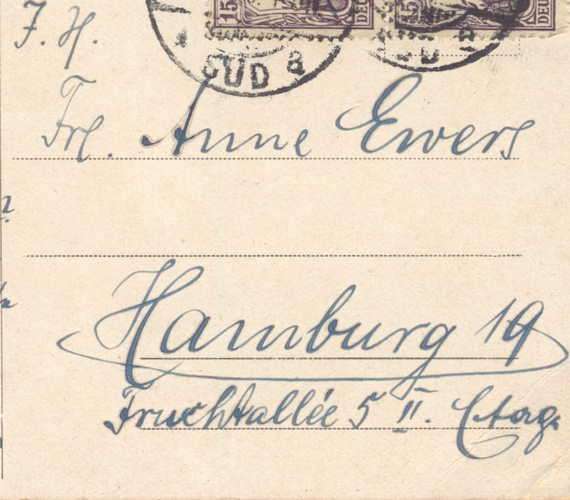 15 15
SÜD a
J. H.
Frl. Anne Ewers
Hamburg 19
Fruchtallée 5 II. Etage